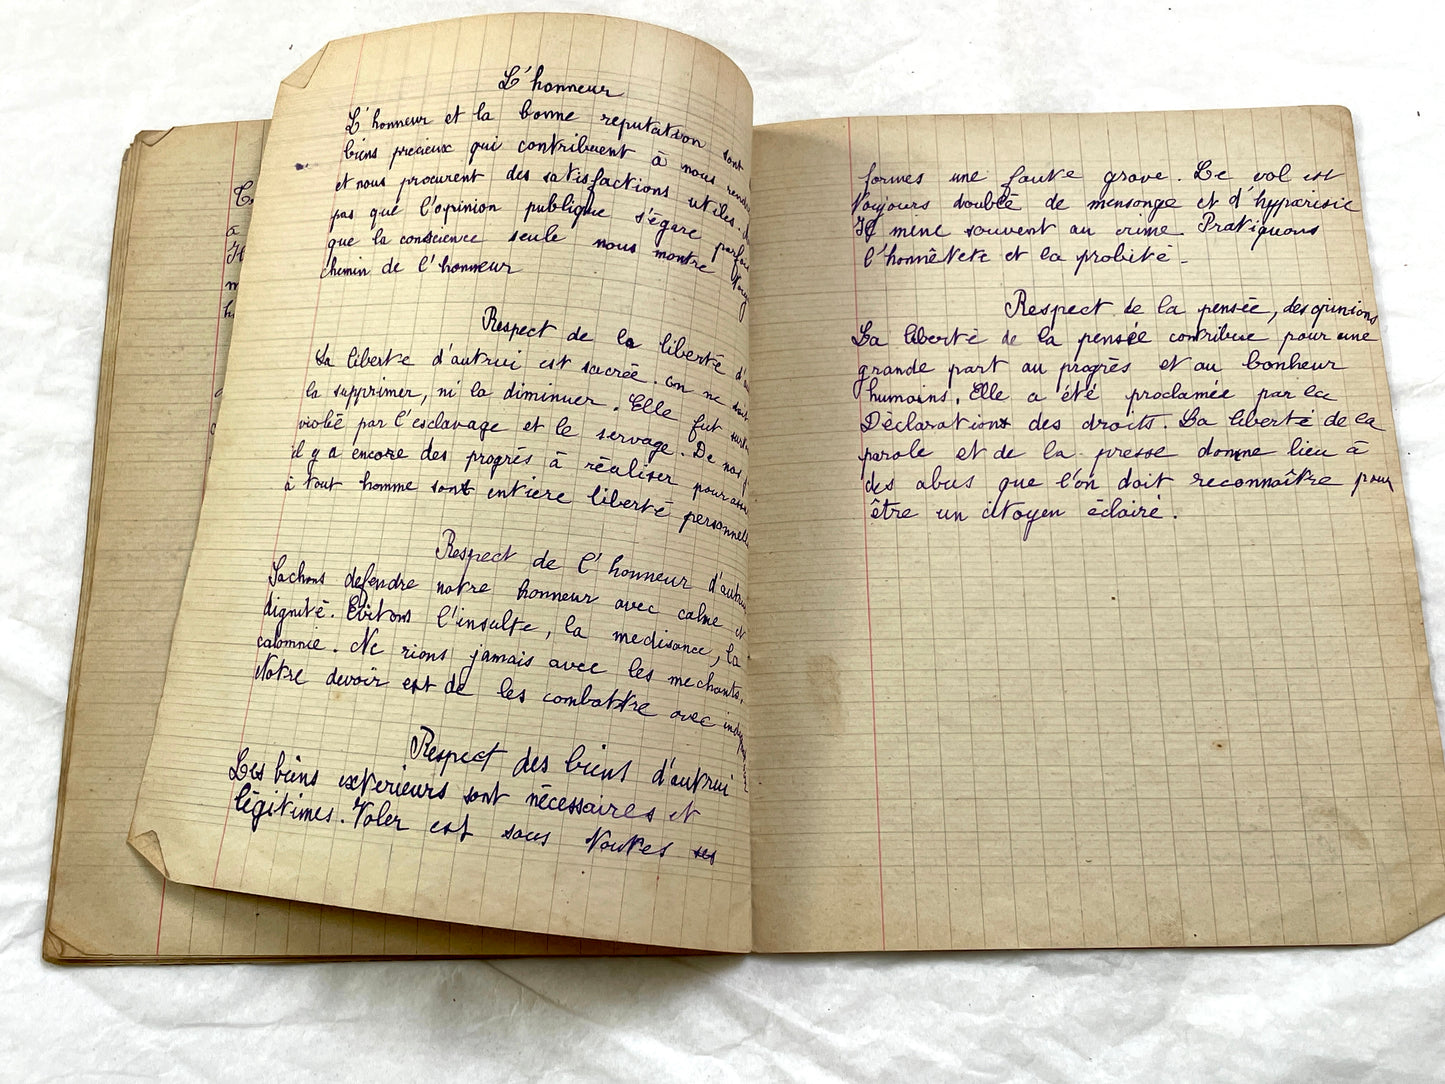 L'honneur
L'honneur et la bonne reputation sont
biens précieux qui contribuent à nous
et nous procurent des satisfactions utiles.
pas que l'opinion publique s'égare
que la conscience seule nous montre
chemin de l'honneur
Respect de la liberté
La liberte d'autrui est sacrée. on ne doit
la supprimer, ni la diminuer. Elle fut
violée par l'esclavage et le servage. De nos
il y a encore des progrès à réaliser pour
à tout homme sont entière liberté personnelle
Respect de l'honneur d'autrui
Sachons defendre notre honneur avec calme et
dignité. Evitons l'insulte, la medisance, la
calomnie. Ne rions jamais avec les mechants.
Notre devoir est de les combattre avec
Respect des biens d'autrui
Les biens exterieurs sont nécessaires et
légitimes. Voler est sous toutes ses
formes une faute grave. Le vol est
toujours doublé de mensonge et d'hyparisie
Il mène souvent au crime Pratiquons
l'honnêtete et la probité.
Respect de la pensée, des opinions
La liberté de la pensée contribue pour une
grande part au progrès et au bonheur
humains. Elle a été proclamée par la
Dèclarations des droits. La liberté de la
parole et de la presse donne lieu à
des abus que l'on doit reconnaître pour
être un citoyen éclairé.